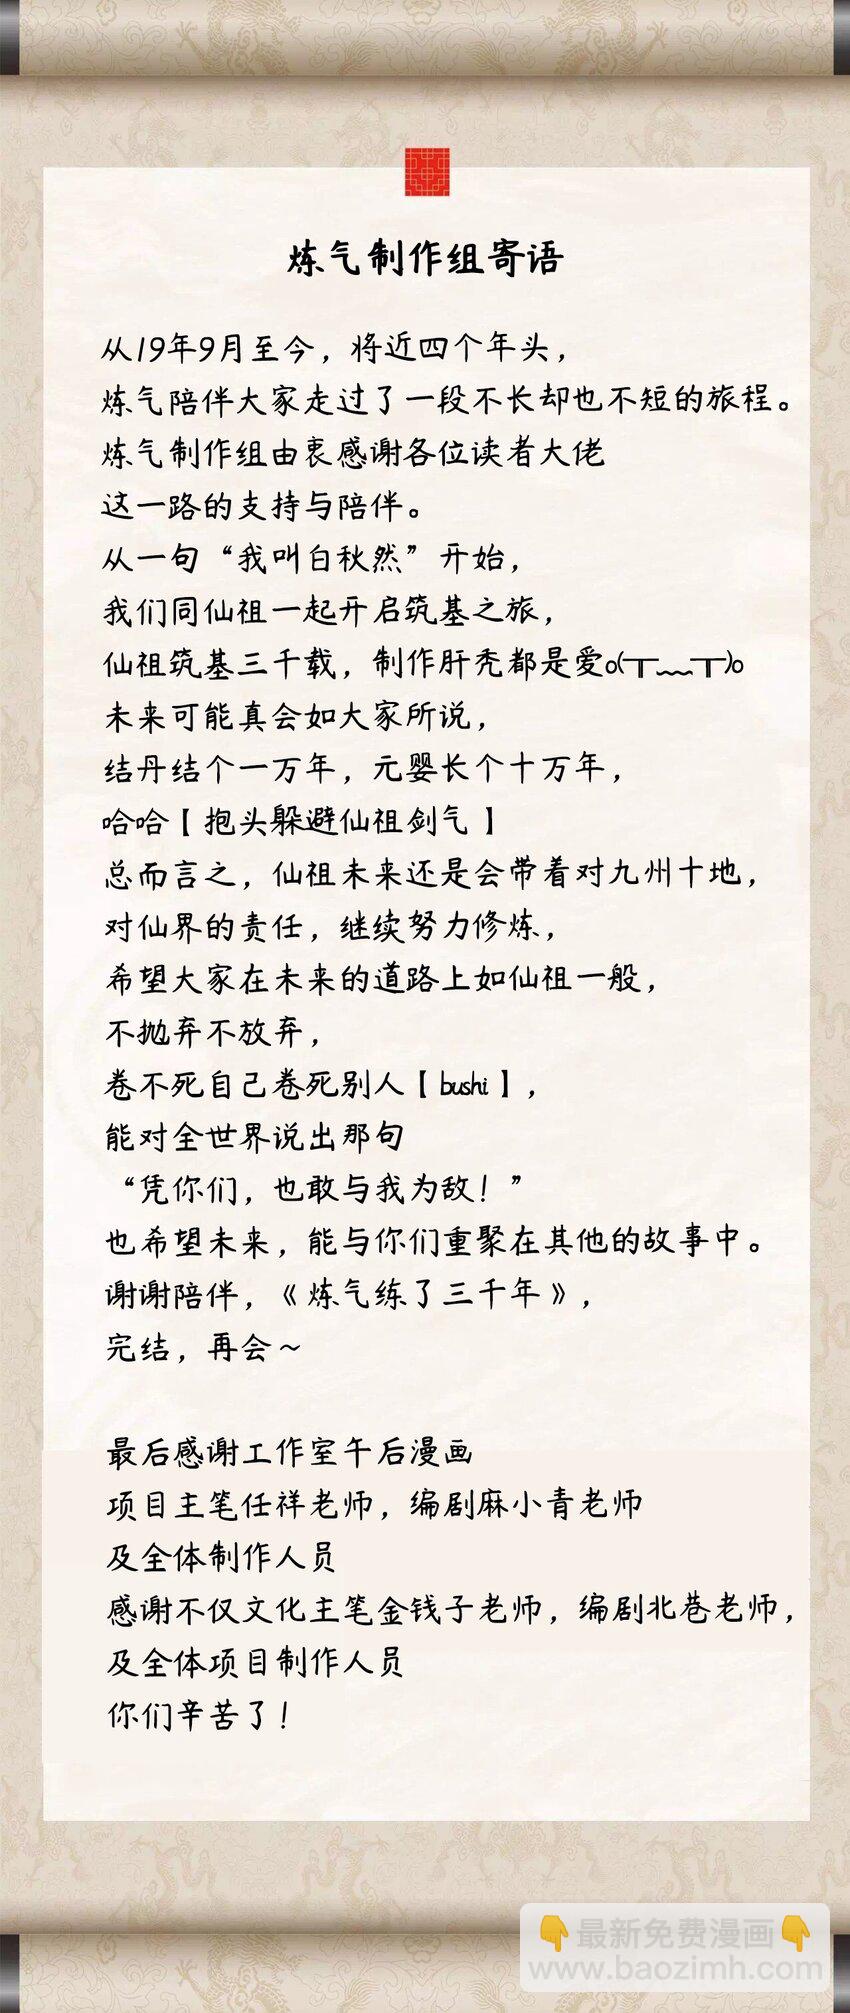 炼气制作组寄语
从19年9月至今，将近四个年头，
炼气陪伴大家走过了一段不长却也不短的旅程。
炼气制作组由衷感谢各位读者大佬
这一路的支持与陪伴。
从一句“我叫白秋然”开始，
我们同仙祖一起开启筑基之旅，
仙祖筑基三千载，制作肝秃都是爱o(╥﹏╥)o
未来可能真会如大家所说，
结丹结个一万年，元婴长个十万年，
哈哈【抱头躲避仙祖剑气】
总而言之，仙祖未来还是会带着对九州十地，
对仙界的责任，继续努力修炼，
希望大家在未来的道路上如仙祖一般，
不抛弃不放弃，
卷不死自己卷死别人【bushi】，
能对全世界说出那句
“凭你们，也敢与我为敌！”
也希望未来，能与你们重聚在其他的故事中。
谢谢陪伴，《炼气练了三千年》，
完结，再会～
最后感谢工作室午后漫画
项目主笔任祥老师，编剧麻小青老师
及全体制作人员
感谢不仅文化主笔金钱子老师，编剧北巷老师，
及全体项目制作人员
你们辛苦了！
👇最新免费漫画👇
www.baozimh.com